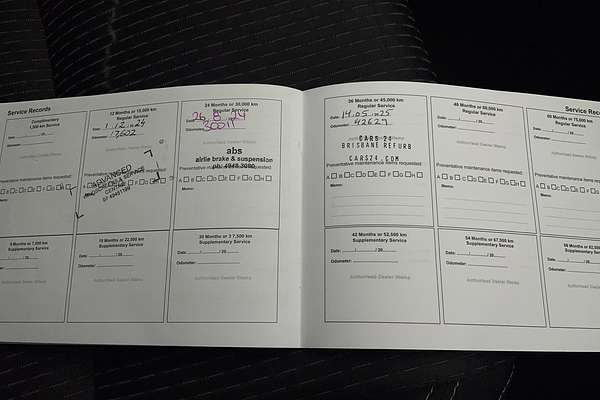 Service Records
Complimentary
1,500 km Service
Date:
Odometer:
Authorised Dealer Stamp
Preventative maintenance items requested:
A B C D E F G H
Memo:
12 Months or 15,000 km
Regular Service
Date: 1.12.24
Odometer: 13602
ADVANCED
CENTRE
24 Months or 30,000 km
Regular Service
Date: 26.8.24
Odometer: 30011
abs
airlie brake & suspension
ph: 4948 3090
Preventative maintenance items requested:
A B C D E F G H
Memo:
9 Months or 7,500 km
Supplementary Service
Date: / / 20
Odometer:
Authorised Dealer Stamp
18 Months or 22,500 km
Supplementary Service
Date: / / 20
Odometer:
Authorised Dealer Stamp
30 Months or 37,500 km
Supplementary Service
Date: / / 20
Odometer:
Authorised Dealer Stamp
36 Months or 45,000 km
Regular Service
Date: 14.05.2025
Odometer: 42629
CARS 24
BRISBANE REFURB
CARS24.COM
Preventative maintenance items requested:
A B C D E F G H
Memo:
48 Months or 60,000 km
Regular Service
Date: / / 20
Odometer:
Authorised Dealer Stamp
Preventative maintenance items requested:
A B C D E F G H
Memo:
Service Rec
60 Months or 75,000 km
Regular Service
Date: / / 20
Odometer:
Authorised Dealer Stamp
Preventative maintenance items
A B C D E F G
Memo:
42 Months or 52,500 km
Supplementary Service
Date: / / 20
Odometer:
Authorised Dealer Stamp
54 Months or 67,500 km
Supplementary Service
Date: / / 20
Odometer:
Authorised Dealer Stamp
Supplementary Service
Date: / / 20
Odometer:
Authorised Dealer